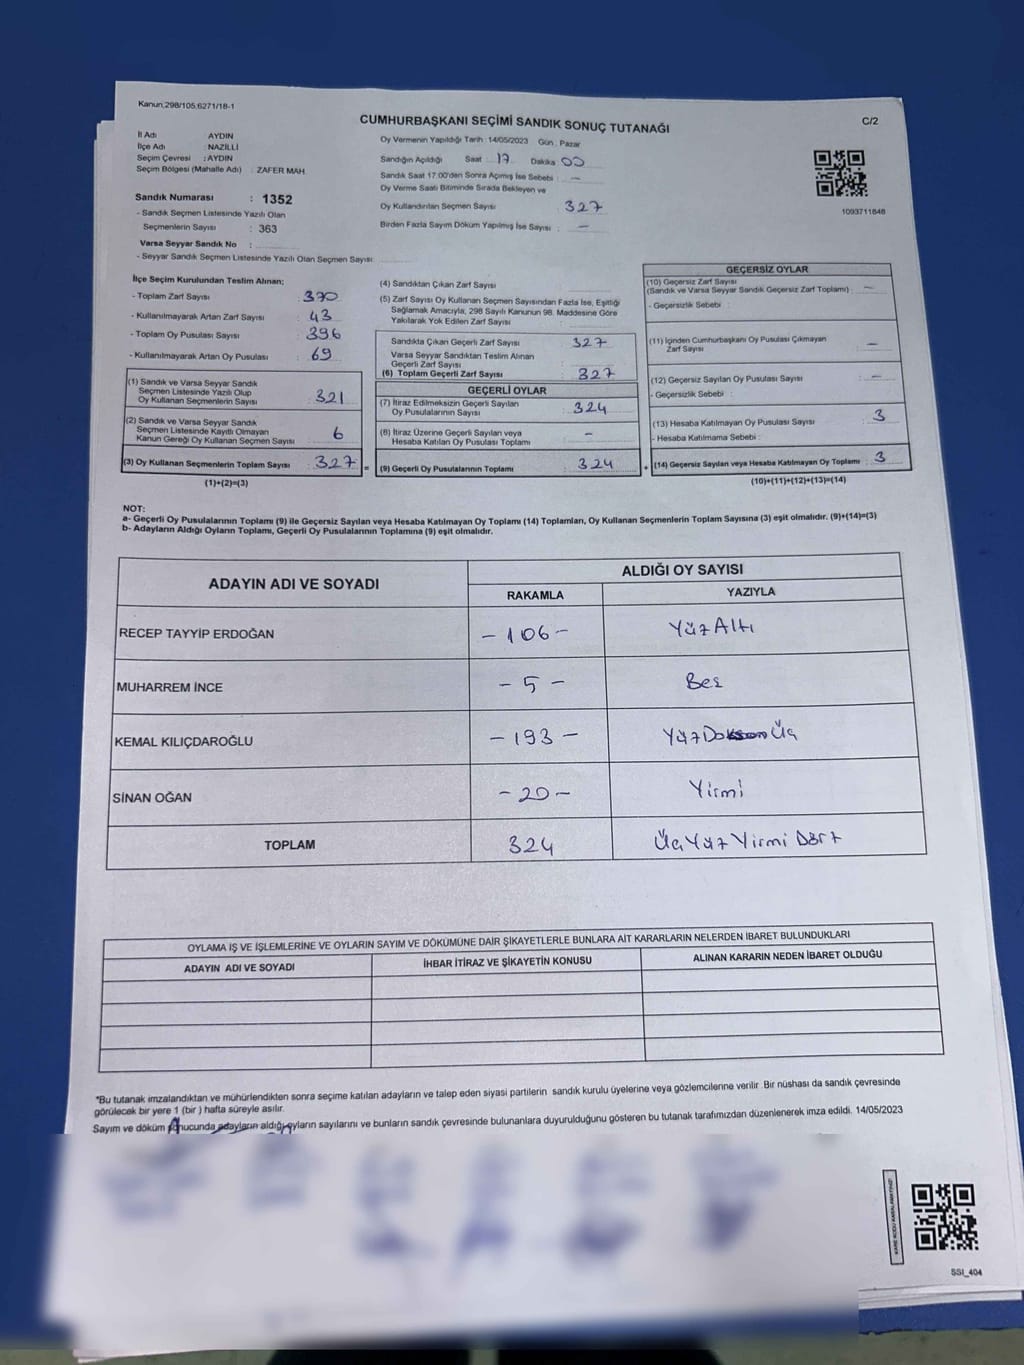 Kanun,298/105,6271/18-1
CUMHURBAŞKANI SEÇİMİ SANDIK SONUÇ TUTANAĞI
C/2
İl Adı : AYDIN
İlçe Adı : NAZİLLİ
Seçim Çevresi : AYDIN
Seçim Bölgesi (Mahalle Adı) : ZAFER MAH
Sandık Numarası : 1352
- Sandık Seçmen Listesinde Yazılı Olan
Seçmenlerin Sayısı : 363
Varsa Seyyar Sandık No :
- Seyyar Sandık Seçmen Listesinde Yazılı Olan Seçmen Sayısı:
Oy Vermenin Yapıldığı Tarih : 14/05/2023 Gün : Pazar
Sandığın Açıldığı Saat : 17 Dakika 00
Sandık Saat 17:00'den Sonra Açımış İse Sebebi : -
Oy Verme Saati Bitiminde Sırada Bekleyen ve
Oy Kullandırılan Seçmen Sayısı : 327
Birden Fazla Sayım Döküm Yapılmış İse Sayısı : -
1093711848
İlçe Seçim Kurulundan Teslim Alınan;
- Toplam Zarf Sayısı : 370
- Kullanılmayarak Artan Zarf Sayısı : 43
- Toplam Oy Pusulası Sayısı : 396
- Kullanılmayarak Artan Oy Pusulası : 69
(1) Sandık ve Varsa Seyyar Sandık
Seçmen Listesinde Yazılı Olup
Oy Kullanan Seçmenlerin Sayısı : 321
(2) Sandık ve Varsa Seyyar Sandık
Seçmen Listesinde Kayıtlı Olmayan
Kanun Gereği Oy Kullanan Seçmen Sayısı : 6
(3) Oy Kullanan Seçmenlerin Toplam Sayısı : 327 =
(1)+(2)=(3)
(4) Sandıktan Çıkan Zarf Sayısı :
(5) Zarf Sayısı Oy Kullanan Seçmen Sayısından Fazla İse, Eşitliği
Sağlamak Amacıyla, 298 Sayılı Kanunun 98. Maddesine Göre
Yakılarak Yok Edilen Zarf Sayısı :
Sandıkta Çıkan Geçerli Zarf Sayısı : 327
Varsa Seyyar Sandıktan Teslim Alınan
Geçerli Zarf Sayısı :
(6) Toplam Geçerli Zarf Sayısı : 327
GEÇERLİ OYLAR
(7) İtiraz Edilmeksizin Geçerli Sayılan
Oy Pusulalarının Sayısı : 324
(8) İtiraz Üzerine Geçerli Sayılan veya
Hesaba Katılan Oy Pusulası Toplamı : -
(9) Geçerli Oy Pusulalarının Toplamı : 324 +
GEÇERSİZ OYLAR
(10) Geçersiz Zarf Sayısı
(Sandık ve Varsa Seyyar Sandık Geçersiz Zarf Toplamı) : -
- Geçersizlik Sebebi :
(11) İçinden Cumhurbaşkanı Oy Pusulası Çıkmayan
Zarf Sayısı : -
(12) Geçersiz Sayılan Oy Pusulası Sayısı : -
- Geçersizlik Sebebi :
(13) Hesaba Katılmayan Oy Pusulası Sayısı : 3
- Hesaba Katılmama Sebebi :
(14) Geçersiz Sayılan veya Hesaba Katılmayan Oy Toplamı : 3
(10)+(11)+(12)+(13)=(14)
NOT:
a- Geçerli Oy Pusulalarının Toplamı (9) ile Geçersiz Sayılan veya Hesaba Katılmayan Oy Toplamı (14) Toplamları, Oy Kullanan Seçmenlerin Toplam Sayısına (3) eşit olmalıdır. (9)+(14)=(3)
b- Adayların Aldığı Oyların Toplamı, Geçerli Oy Pusulalarının Toplamına (9) eşit olmalıdır.
ADAYIN ADI VE SOYADI
ALDIĞI OY SAYISI
RAKAMLA
YAZIYLA
RECEP TAYYİP ERDOĞAN - 106 - Yüz Altı
MUHARREM İNCE - 5 - Beş
KEMAL KILIÇDAROĞLU - 193 - Yüz Doksan Üç
SİNAN OĞAN - 20 - Yirmi
TOPLAM 324 Üç Yüz Yirmi Dört
OYLAMA İŞ VE İŞLEMLERİNE VE OYLARIN SAYIM VE DÖKÜMÜNE DAİR ŞİKAYETLERLE BUNLARA AİT KARARLARIN NELERDEN İBARET BULUNDUKLARI
ADAYIN ADI VE SOYADI
İHBAR İTİRAZ VE ŞİKAYETİN KONUSU
ALINAN KARARIN NEDEN İBARET OLDUĞU
*Bu tutanak imzalandıktan ve mühürlendikten sonra seçime katılan adayların ve talep eden siyasi partilerin sandık kurulu üyelerine veya gözlemcilerine verilir. Bir nüshası da sandık çevresinde
görülecek bir yere 1 (bir) hafta süreyle asılır.
Sayım ve döküm sonucunda adayların aldığı oyların sayılarını ve bunların sandık çevresinde bulunanlara duyurulduğunu gösteren bu tutanak tarafımızdan düzenlenerek imza edildi. 14/05/2023
KARE KODU KARALAMAYINIZ!
SSI_404